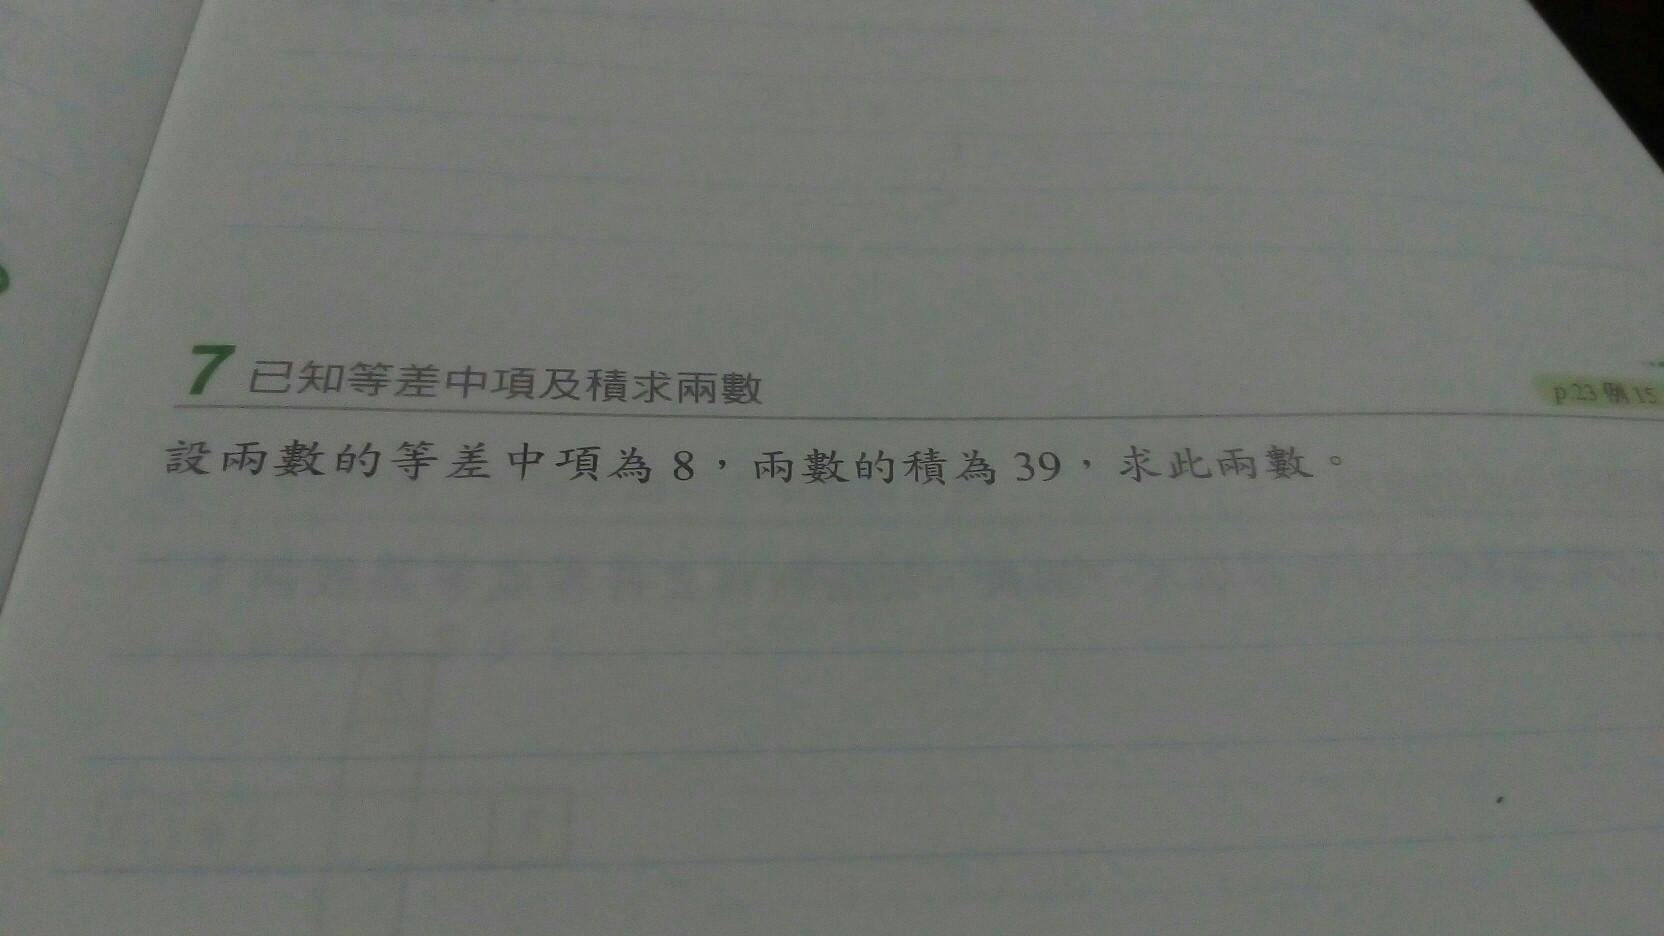 7 已知等差中項及積求兩數
p.23 例 15
設兩數的等差中項為 8，兩數的積為 39，求此兩數。